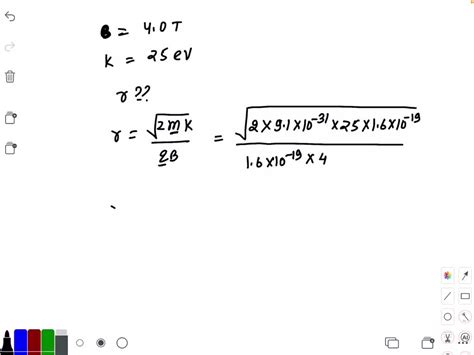 B = 4.0 T
K = 25 eV
r ??
r = √2mK / qB = √2×9.1×10⁻³¹×25×1.6×10⁻¹⁹ / 1.6×10⁻¹⁹×4